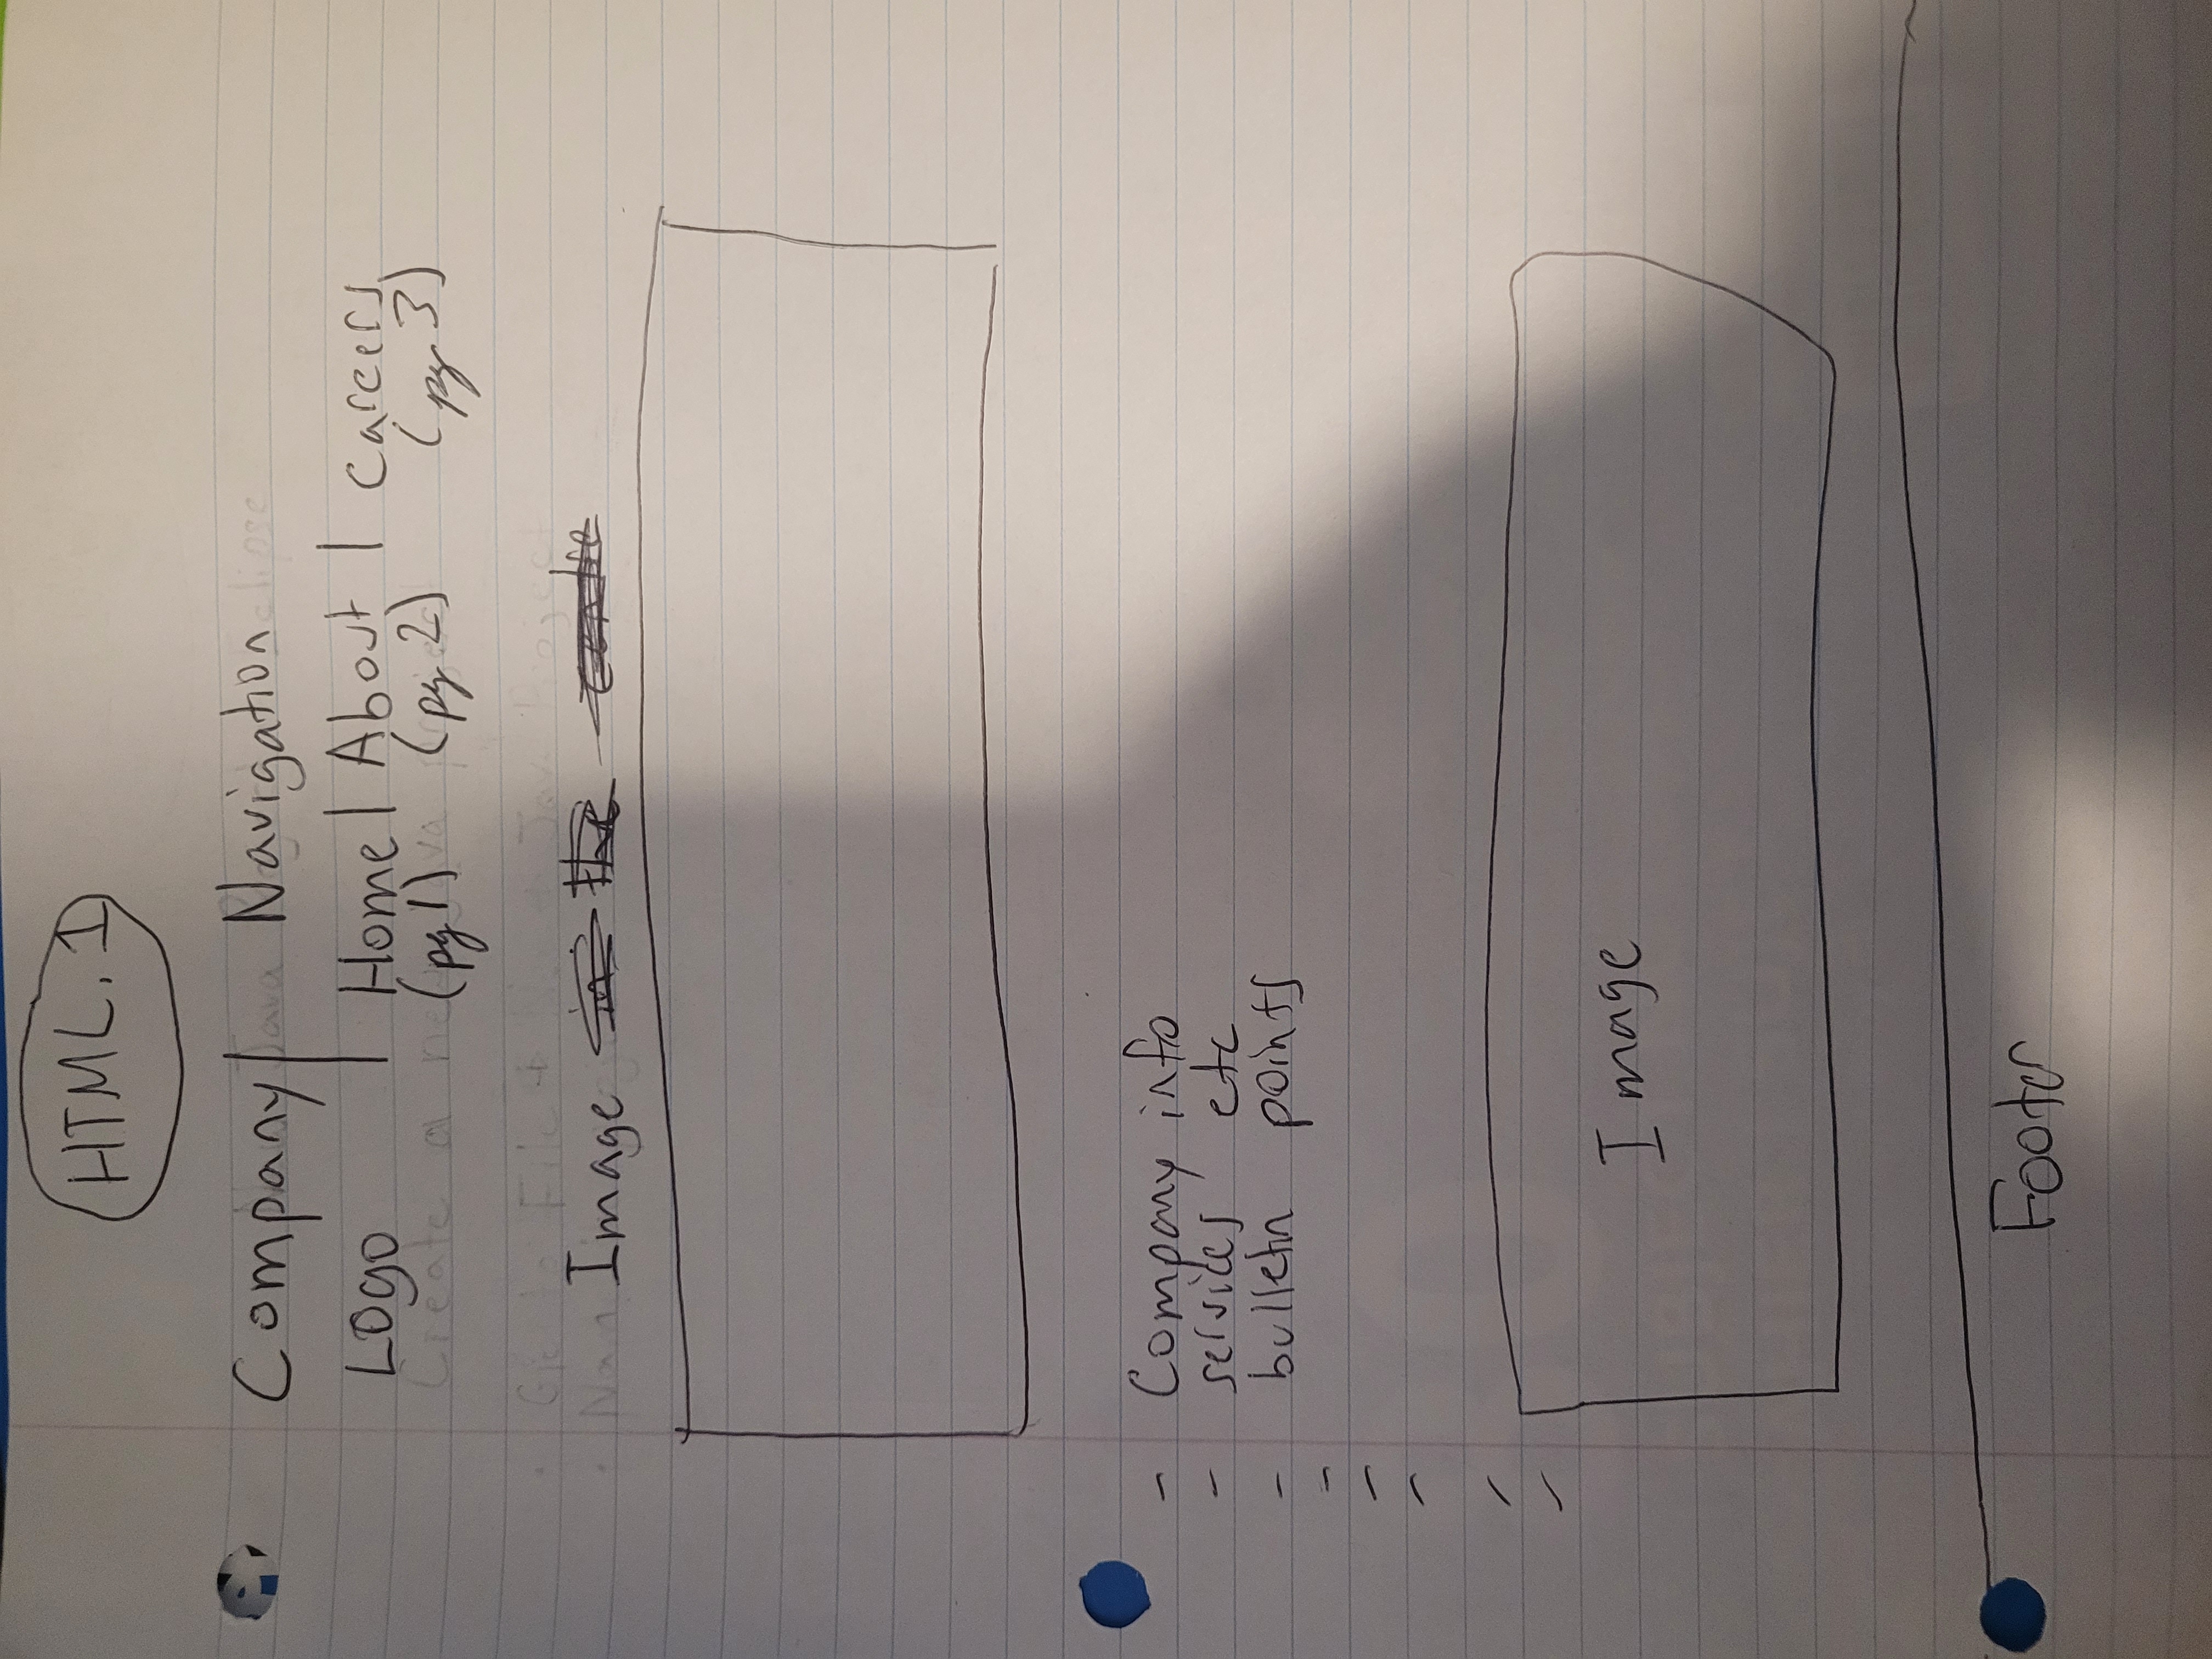 HTML. 1
Company | Navigation
Logo | Home | About | Careers
(pg 1) (pg 2) (pg 3)
Image in the centre
- Company info
- services etc
- bulletin points
-
-
-
-
-
Image
Footer